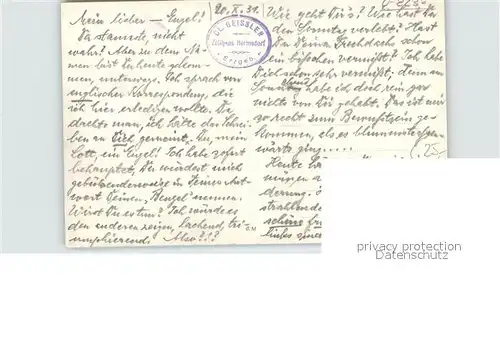 Mein lieber — Engel!
Da staunste, nicht
wahr? Aber zu dem Na-
men bist Du heute gekom-
men, unterwegs. Ich sprach von
englischer Korrespondenz, die
ich hier erledigen wollte. Da
dachte man, ich hätte das Schrei-
ben an Dich gemeint. Du, mein
Gott, ein Engel! Ich habe sofort
behauptet, Du würdest mich
gebührenderweise in Deiner Ant-
wort Deinen „Bengel" nennen.
Wirst Du es tun? Ich würde es
den anderen zeigen, lachend, tri-
umphierend! Also???
20.X.31.
CL. GEISSLER
Zollhaus Hermsdorf
Erzgeb.
Wie geht Dir's? Wie hast Du
den Sonntag verlebt? Hast
Du Deinen Frechdachs schon
ein bißchen vermißt? Ich habe
Dich schon sehr vermißt, denn am
Sonntag abend habe ich doch rein gar
nichts von Dir gehabt. Das ist mir
so recht zum Bewußtsein ge-
kommen, als es
wärts ging....
Heute
derung.
strahlende
schöne
links
privacy protection
oldthing.de